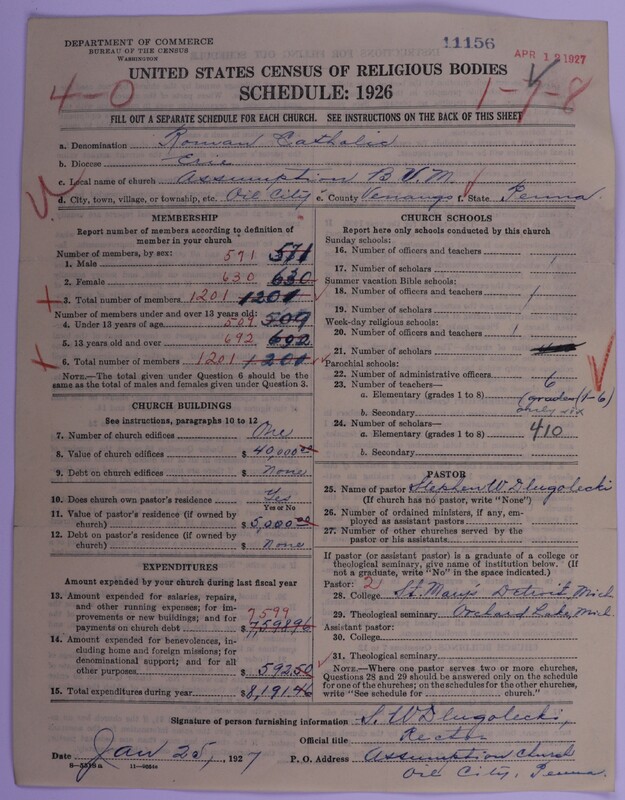 DEPARTMENT OF COMMERCE
BUREAU OF THE CENSUS
WASHINGTON
11156
APR 12 1927
UNITED STATES CENSUS OF RELIGIOUS BODIES
SCHEDULE: 1926
4-0
1-7-8
FILL OUT A SEPARATE SCHEDULE FOR EACH CHURCH. SEE INSTRUCTIONS ON THE BACK OF THIS SHEET
a. Denomination Roman Catholic
b. Diocese Erie
c. Local name of church Assumption B.V.M.
d. City, town, village, or township, etc. Oil City e. County Venango f. State Penna.
MEMBERSHIP
Report number of members according to definition of
member in your church
Number of members, by sex:
1. Male 571 571
2. Female 630 630
3. Total number of members 1201 1201
Number of members under and over 13 years old:
4. Under 13 years of age 509 509
5. 13 years old and over 692 692
6. Total number of members 1201 1200
NOTE.—The total given under Question 6 should be the
same as the total of males and females given under Question 3.
CHURCH BUILDINGS
See instructions, paragraphs 10 to 12
7. Number of church edifices One
8. Value of church edifices $ 40,000.00
9. Debt on church edifices $ None
10. Does church own pastor's residence Yes
Yes or No
11. Value of pastor's residence (if owned by
church) $ 5,000.00
12. Debt on pastor's residence (if owned by
church) $ None
EXPENDITURES
Amount expended by your church during last fiscal year
13. Amount expended for salaries, repairs,
and other running expenses; for im-
provements or new buildings; and for 7599
payments on church debt $ 7,598.96
14. Amount expended for benevolences,
including home and foreign missions; for
denominational support; and for all
other purposes $ 592.50
15. Total expenditures during year $ 8,191.46
CHURCH SCHOOLS
Report here only schools conducted by this church
Sunday schools:
16. Number of officers and teachers
17. Number of scholars
Summer vacation Bible schools:
18. Number of officers and teachers
19. Number of scholars
Week-day religious schools:
20. Number of officers and teachers
21. Number of scholars
Parochial schools:
22. Number of administrative officers
23. Number of teachers— 6
a. Elementary (grades 1 to 8) (grades (1-6)
b. Secondary only six
24. Number of scholars—
a. Elementary (grades 1 to 8) 410
b. Secondary
PASTOR
25. Name of pastor Stephen W Dlugolecki
(If church has no pastor, write "None")
26. Number of ordained ministers, if any, em-
ployed as assistant pastors
27. Number of other churches served by the
pastor or his assistants
If pastor (or assistant pastor) is a graduate of a college or
theological seminary, give name of institution below. (If
not a graduate, write "No" in the space indicated.)
Pastor: 2
28. College St. Mary's Detroit, Mich
29. Theological seminary Orchard Lake, Mich.
Assistant pastor:
30. College
31. Theological seminary
NOTE.—Where one pastor serves two or more churches,
Questions 28 and 29 should be answered only on the schedule
for one of the churches; on the schedules for the other churches,
write "See schedule for church."
Signature of person furnishing information S. W Dlugolecki,
Official title Rector
Date Jan 25, 1927 P. O. Address Assumption Church
8-5518a 11-9864a Oil City, Penna.